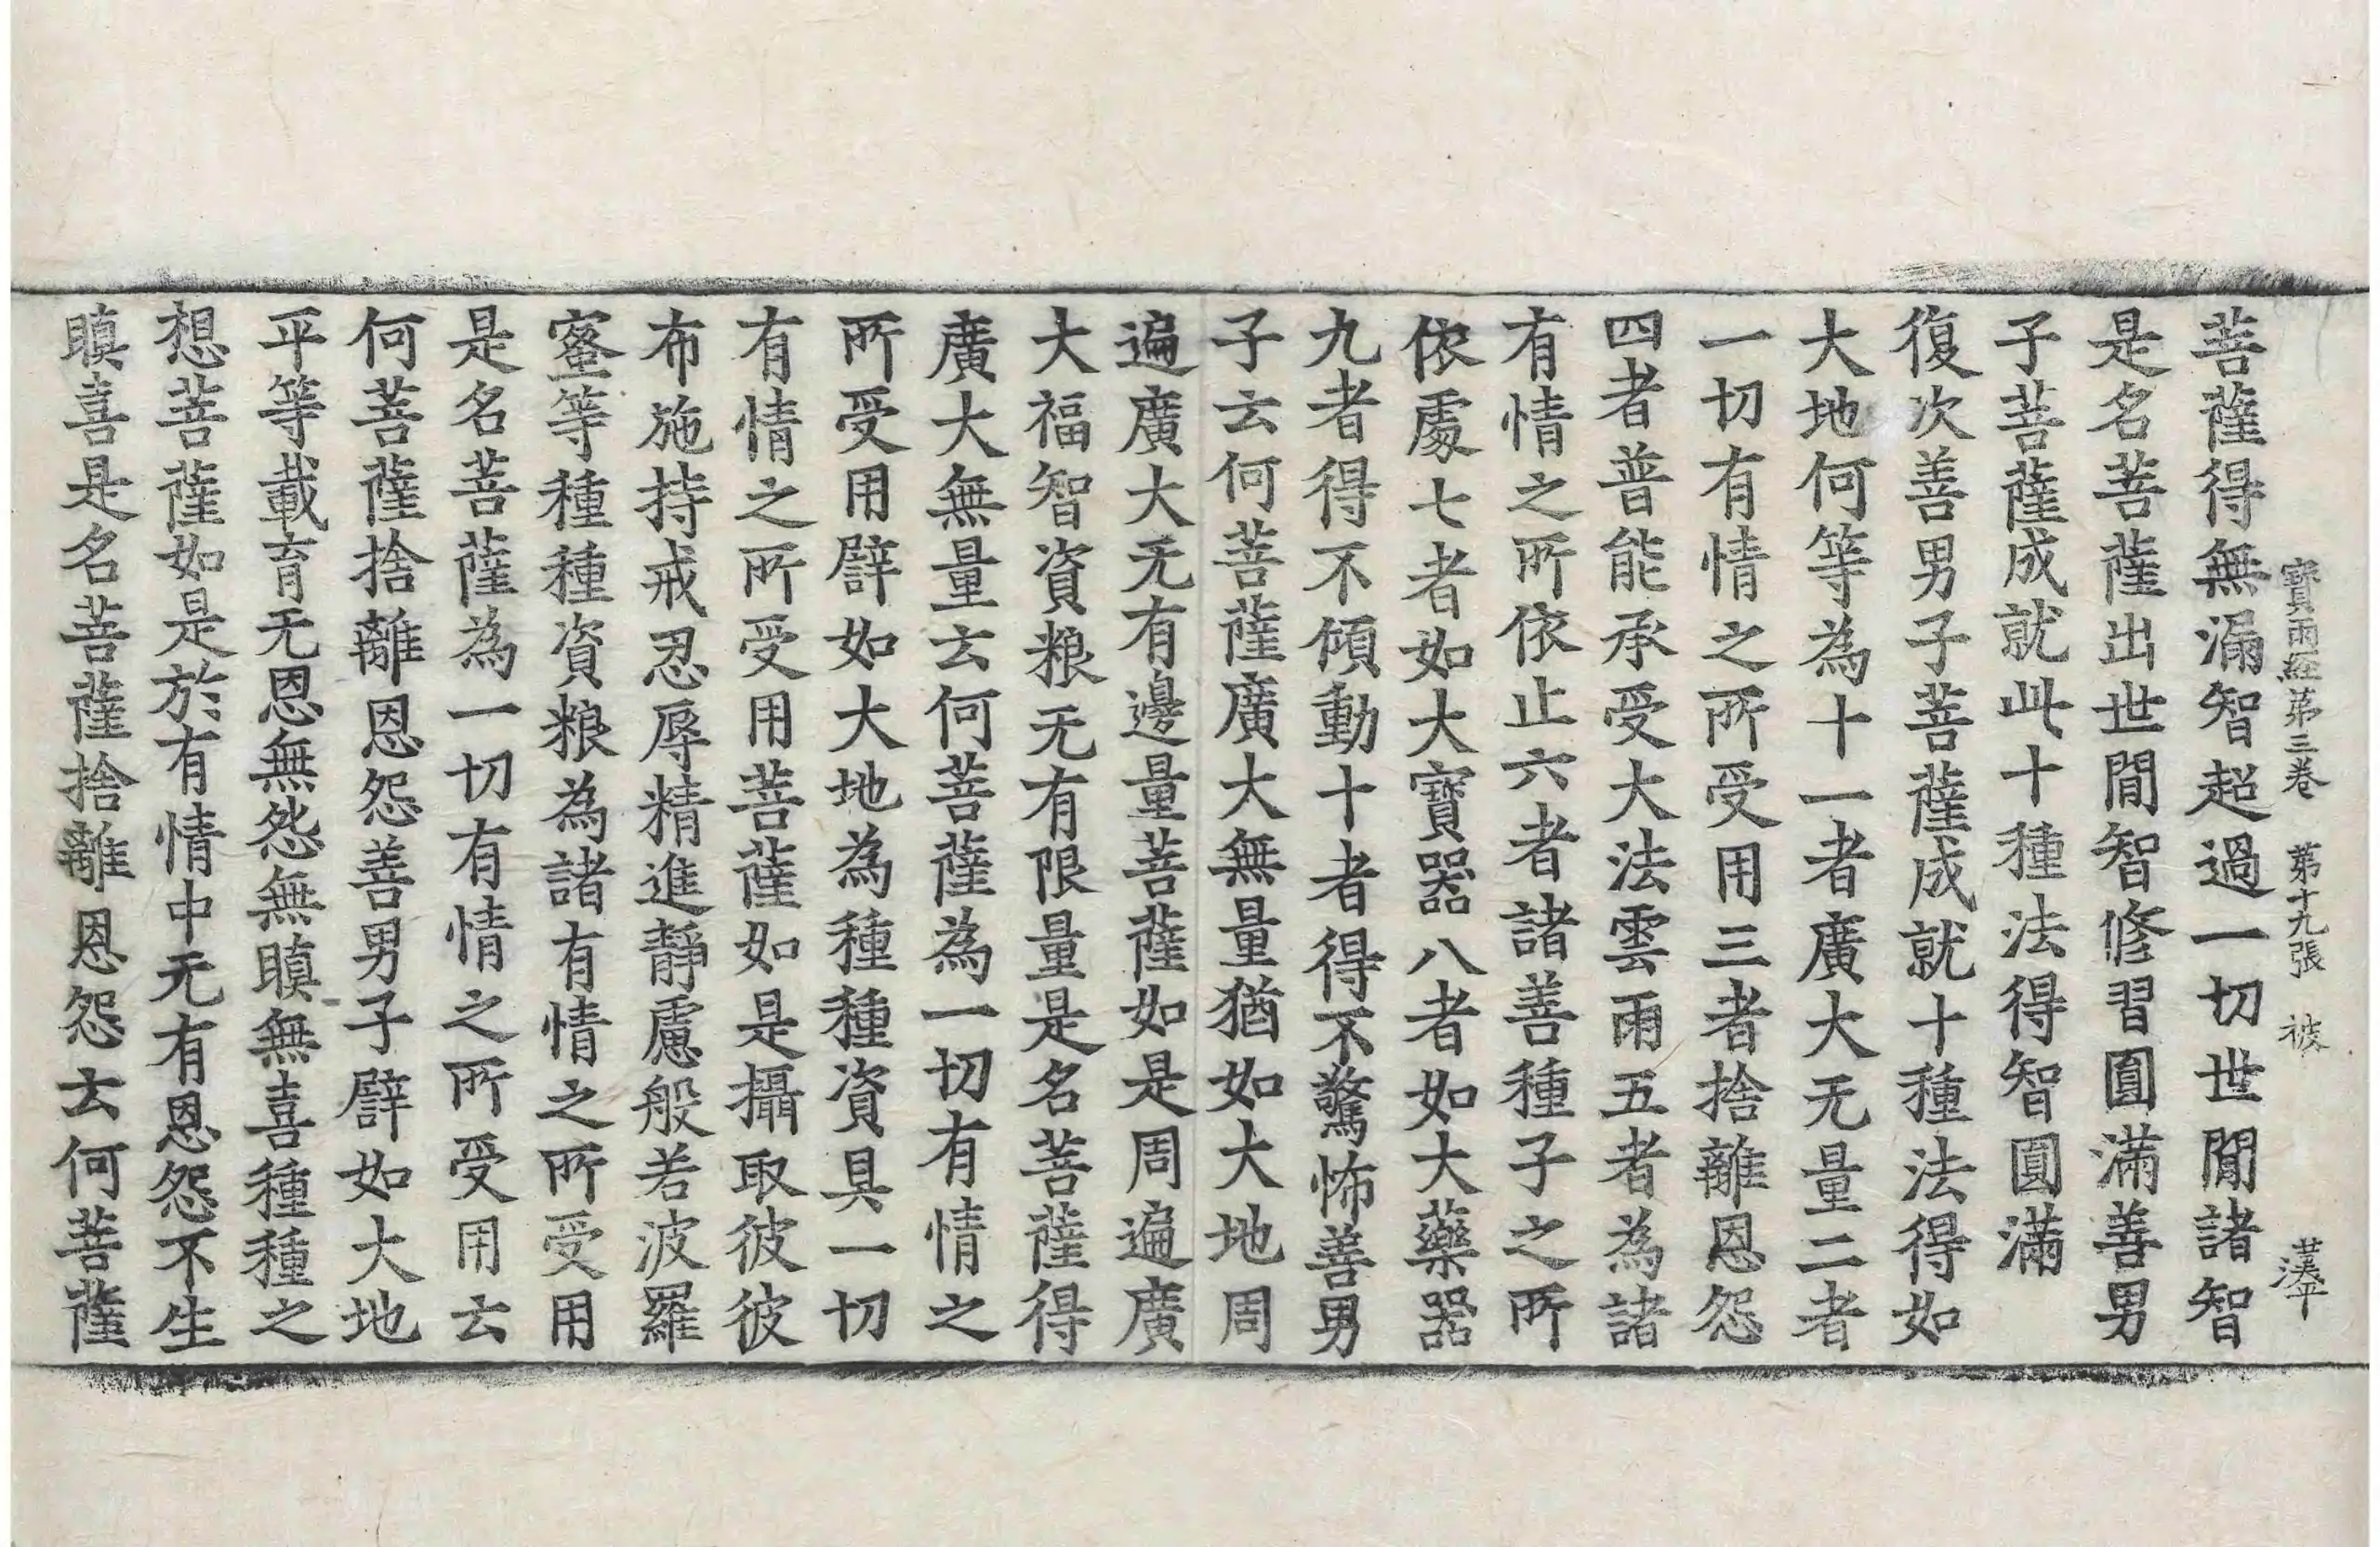 寶雨經第三卷　第十九張　被
菩薩得無漏智超過一切世閒諸智
是名菩薩出世閒智修習圓滿善男
子菩薩成就此十種法得智圓滿
復次善男子菩薩成就十種法得如
大地何等為十一者廣大无量二者
一切有情之所受用三者捨離恩怨
四者普能承受大法雲雨五者為諸
有情之所依止六者諸善種子之所
依處七者如大寶器八者如大藥器
九者得不傾動十者得不驚怖善男
子云何菩薩廣大無量猶如大地周
遍廣大无有邊量菩薩如是周遍廣
大福智資粮无有限量是名菩薩得
廣大無量云何菩薩為一切有情之
所受用譬如大地為種種資具一切
有情之所受用菩薩如是攝取彼彼
布施持戒忍辱精進靜慮般若波羅
蜜等種種資粮為諸有情之所受用
是名菩薩為一切有情之所受用云
何菩薩捨離恩怨善男子譬如大地
平等載育无恩無怨無瞋無喜種種之
想菩薩如是於有情中无有恩怨不生
瞋喜是名菩薩捨離恩怨云何菩薩